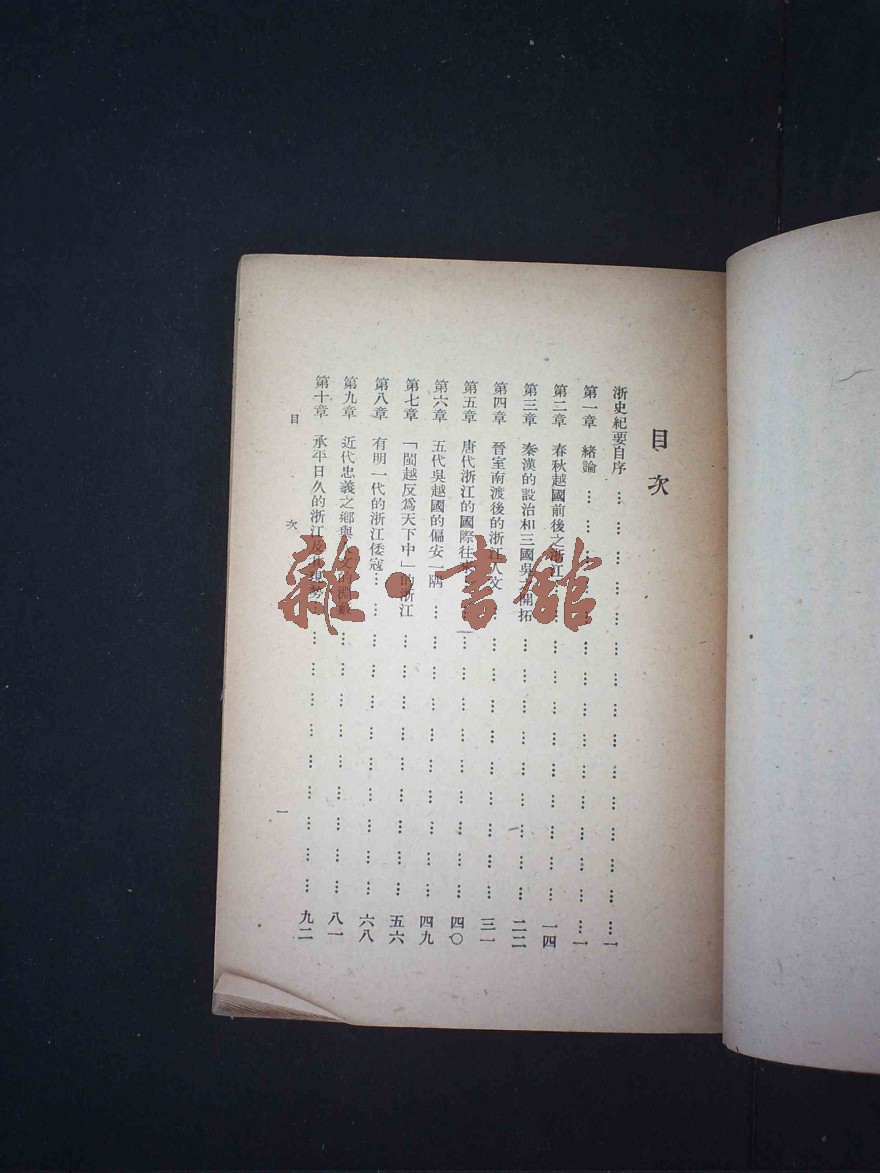 目次
浙史紀要自序 … … … … … … … … … … … … … … … 一
第一章 緒論 … … … … … … … … … … … … … … … 一
第二章 春秋越國前後之浙江 … … … … … … … … … … 一四
第三章 秦漢的設治和三國吳之開拓 … … … … … … … … 二二
第四章 晉室南渡後的浙江人文 … … … … … … … … … 三一
第五章 唐代浙江的國際往來 … … … … … … … … … 四〇
第六章 五代吳越國的偏安一隅 … … … … … … … … … … 四九
第七章 「閩越反爲天下中」的浙江 … … … … … … … … … 五六
第八章 有明一代的浙江倭寇 … … … … … … … … … … 六八
第九章 近代忠義之鄉與人文的淵藪 … … … … … … … … … 八一
第十章 承平日久的浙江及其現勢 … … … … … … … … … … 九二
目 次
一
雜·書館